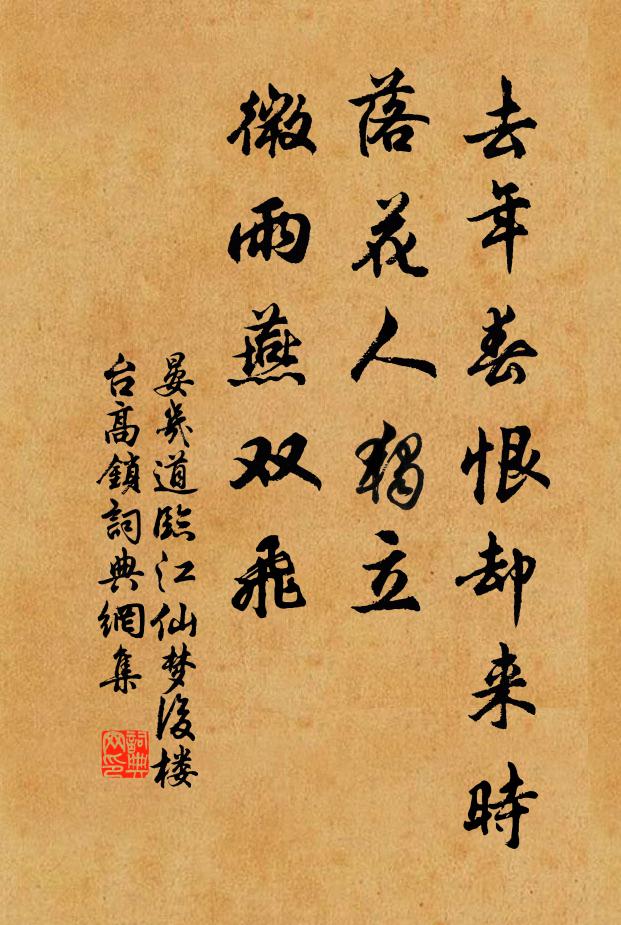 去年春恨却来時
落花人獨立
微雨燕双飛
晏幾道臨江仙梦後楼
台高鎖詞典網集
詞典網印